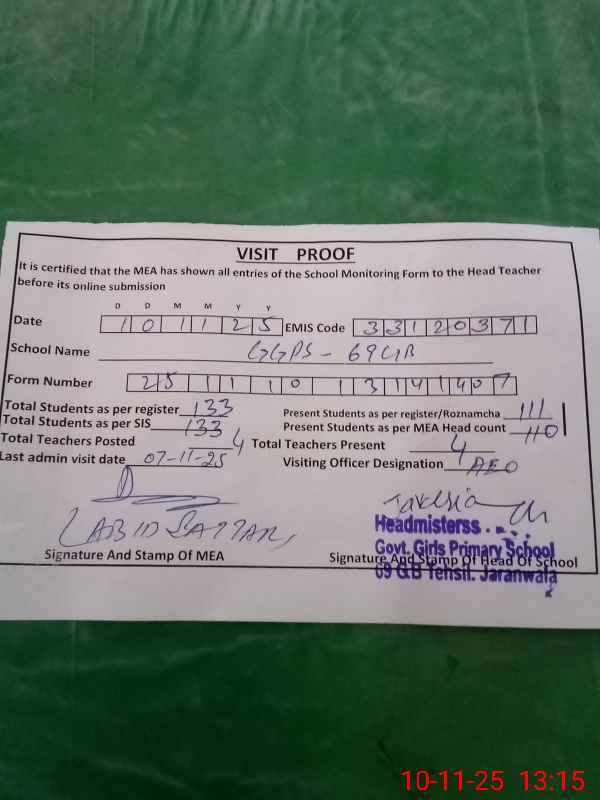 VISIT PROOF
It is certified that the MEA has shown all entries of the School Monitoring Form to the Head Teacher
before its online submission
D D M M Y Y
Date 1 0 1 1 2 5 EMIS Code 3 3 1 2 0 3 7 1
School Name GGPS - 69GB
Form Number 2 5 1 1 1 0 1 3 14 1 40 7
Total Students as per register 133 Present Students as per register/Roznamcha 111
Total Students as per SIS 133 Present Students as per MEA Head count 110
Total Teachers Posted 4 Total Teachers Present 4
Last admin visit date 07-11-25 Visiting Officer Designation AEO
Headmisterss
Govt. Girls Primary School
Signature And Stamp Of MEA Signature And Stamp Of Head Of School
69 G.B Tehsil. Jaranwala
10-11-25 13:15